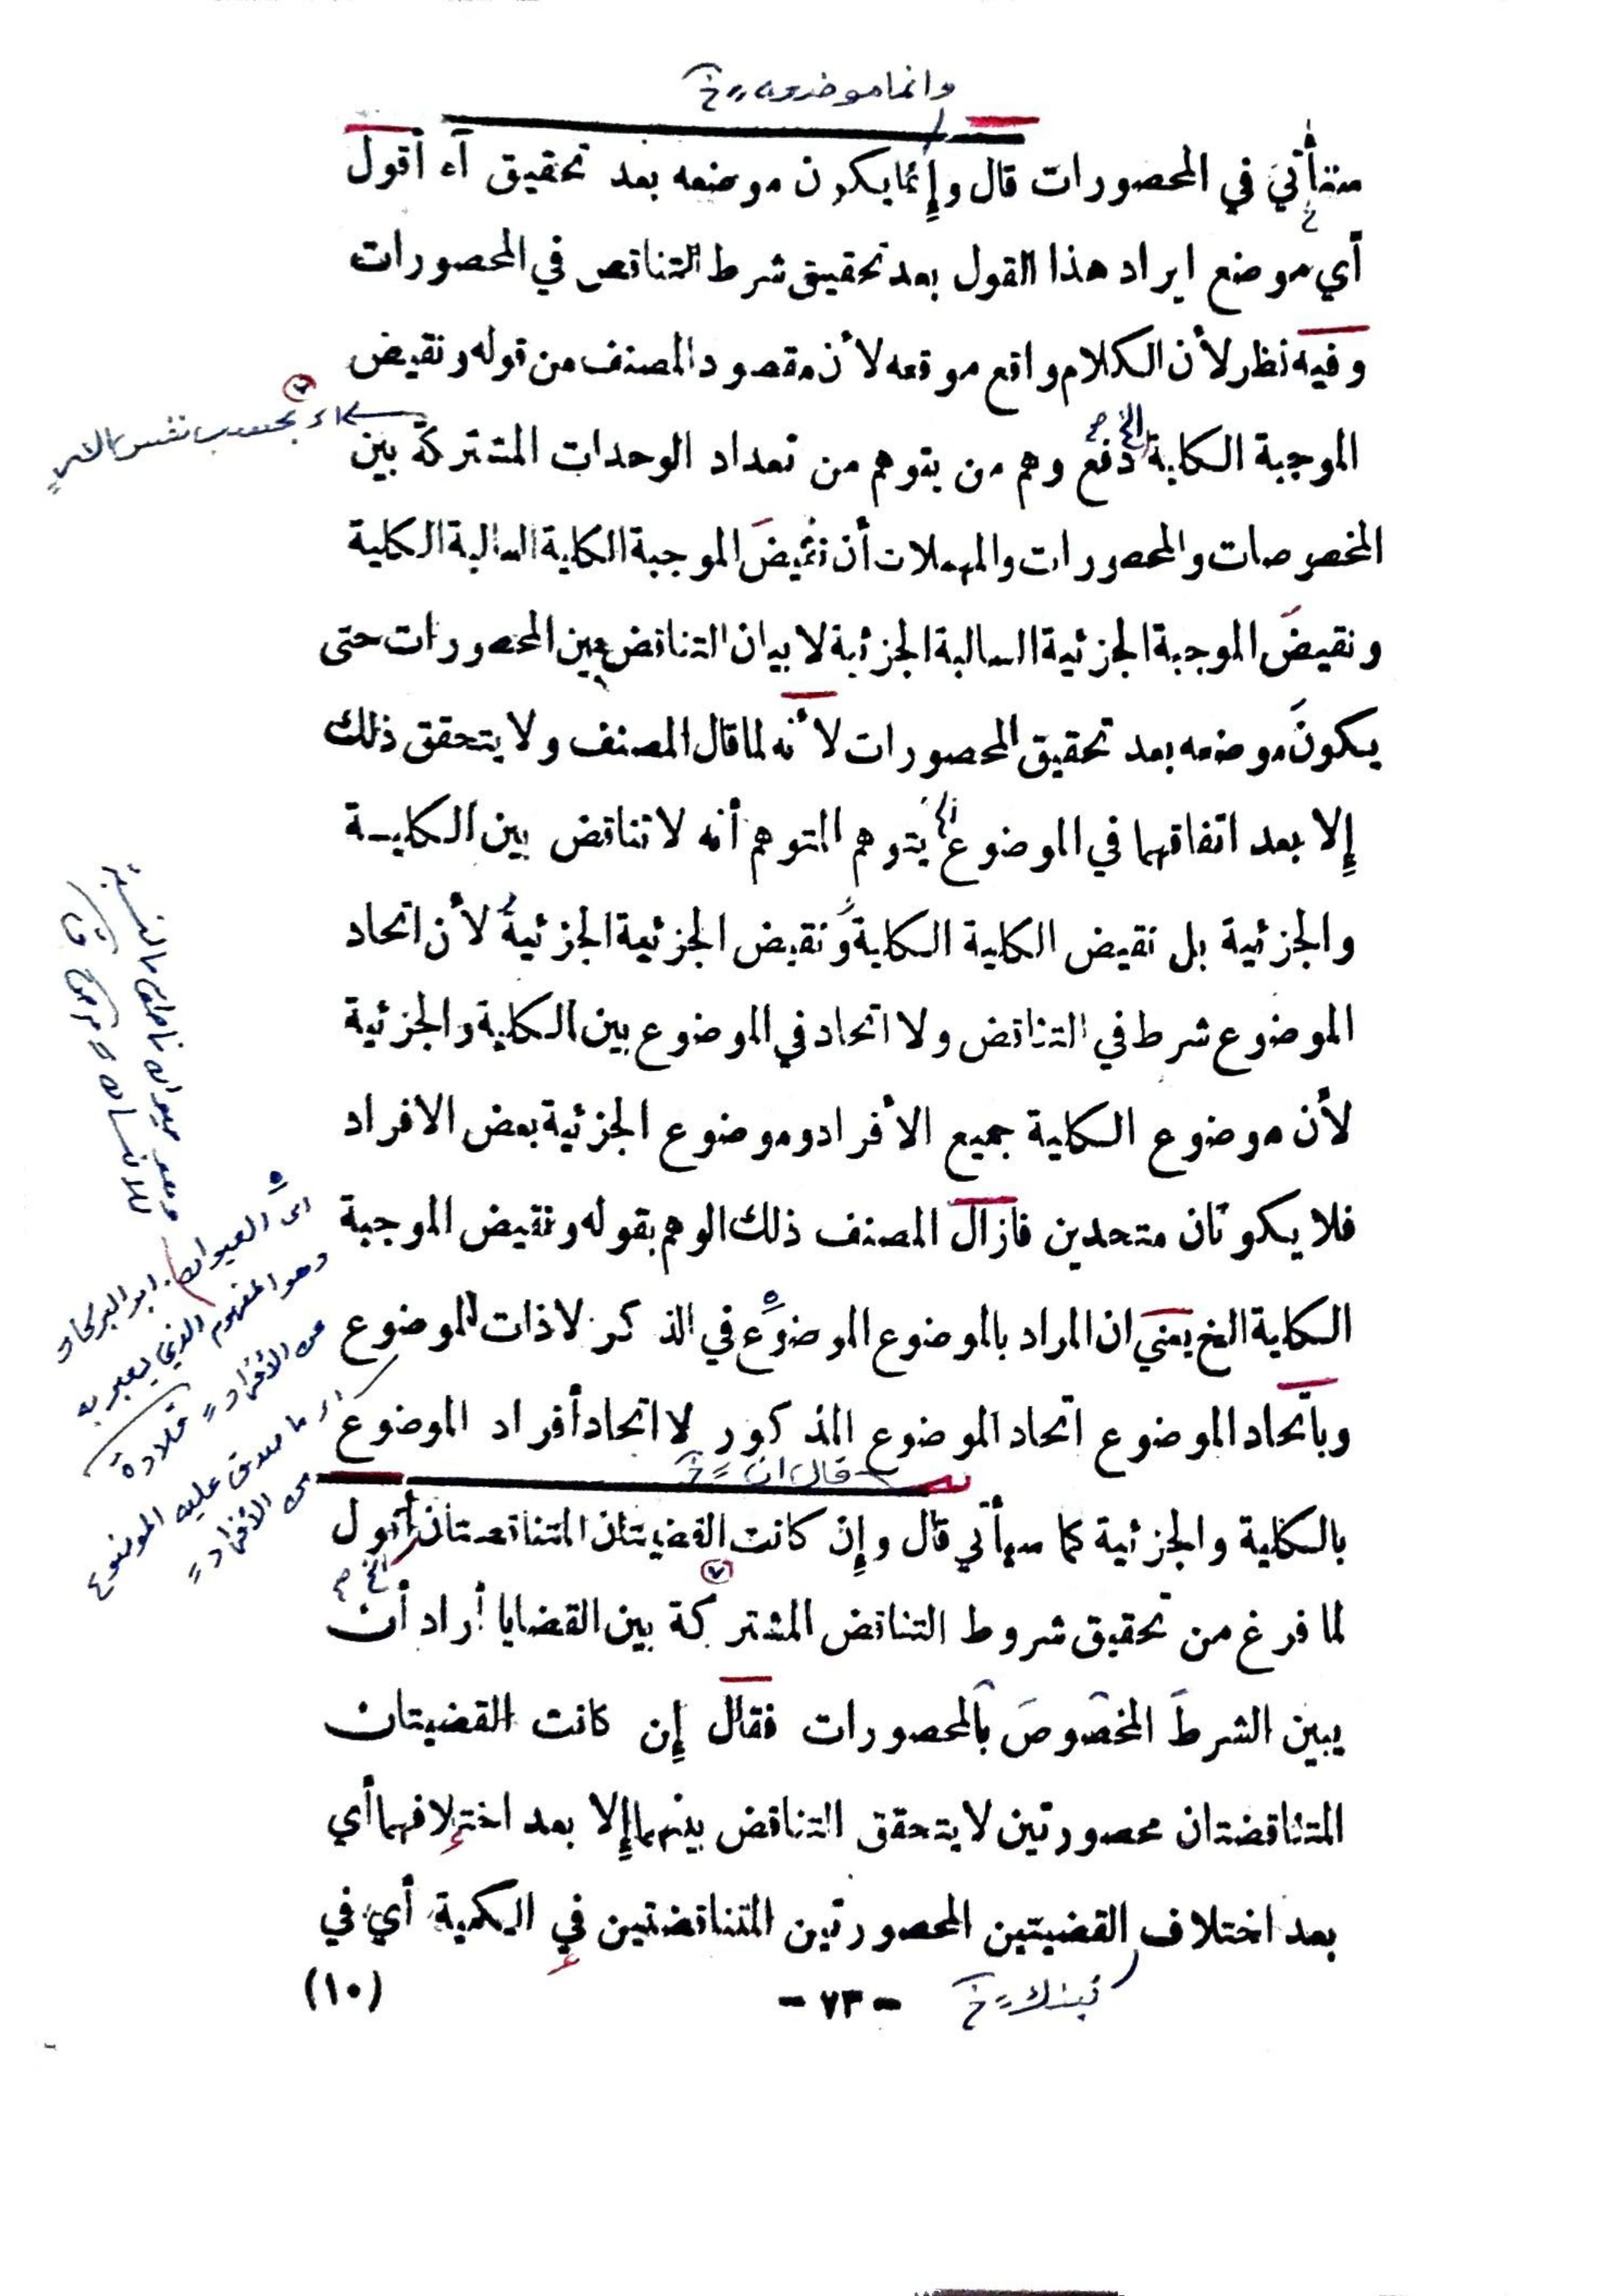 وانما موضعه خ
ستأتي في المحصورات قال وإنما يكون موضعه بعد تحقيق آه أقول
أي موضع ايراد هذا القول بعد تحقيق شرط التناقص في المحصورات
وفيه نظر لأن الكلام واقع موقعه لأن مقصود المصنف من قوله ونقيض
الخ صح
الموجبة الكلية دفع وهم من يتوهم من تعداد الوحدات المشتركة بين
المخصوصات والمحصورات والمهملات أن نقيضَ الموجبة الكلية السالبة الكلية
ونقيضَ الموجبة الجزئية السالبة الجزئية لا بيان التناقض بين المحصورات حتى
يكونَ موضعه بعد تحقيق المحصورات لأنه لما قال المصنف ولا يتحقق ذلك
إلا بعد اتفاقهما في الموضوع الخ يتوهم المتوهم أنه لا تناقض بين الكلية
والجزئية بل نقيض الكلية الكلية ونقيض الجزئية الجزئية لأن اتحاد
الموضوع شرط في التناقض ولا اتحاد في الموضوع بين الكلية والجزئية
لأن موضوع الكلية جميع الأفراد وموضوع الجزئية بعض الافراد
فلا يكونان متحدين فازال المصنف ذلك الوهم بقوله ونقيض الموجبة
الكلية الخ يعني ان المراد بالموضوع الموضوع في الذكر لا ذات الموضوع
وباتحاد الموضوع اتحاد الموضوع المذكور لا اتحاد أفراد الموضوع
قال ان خ
بالكلية والجزئية كما سيأتي قال وإن كانت القضيتان المتناقصتان أقول
الخ صح
لما فرغ من تحقيق شروط التناقض المشتركة بين القضايا أراد أن
يبين الشرطَ المخصوصَ بالمحصورات فقال إن كانت القضيتان
المتناقضتان محصورتين لا يتحقق التناقض بينهما إلا بعد اختلافهما أي
بعد اختلاف القضيتين المحصورتين المتناقضتين في الكمية أي في
- ٧٣ -
(١٠)
اي الحيوان
وهو المفهوم الذي يعبر به
عن الأفراد
اي ما صدق عليه الموضوع
من الأفراد